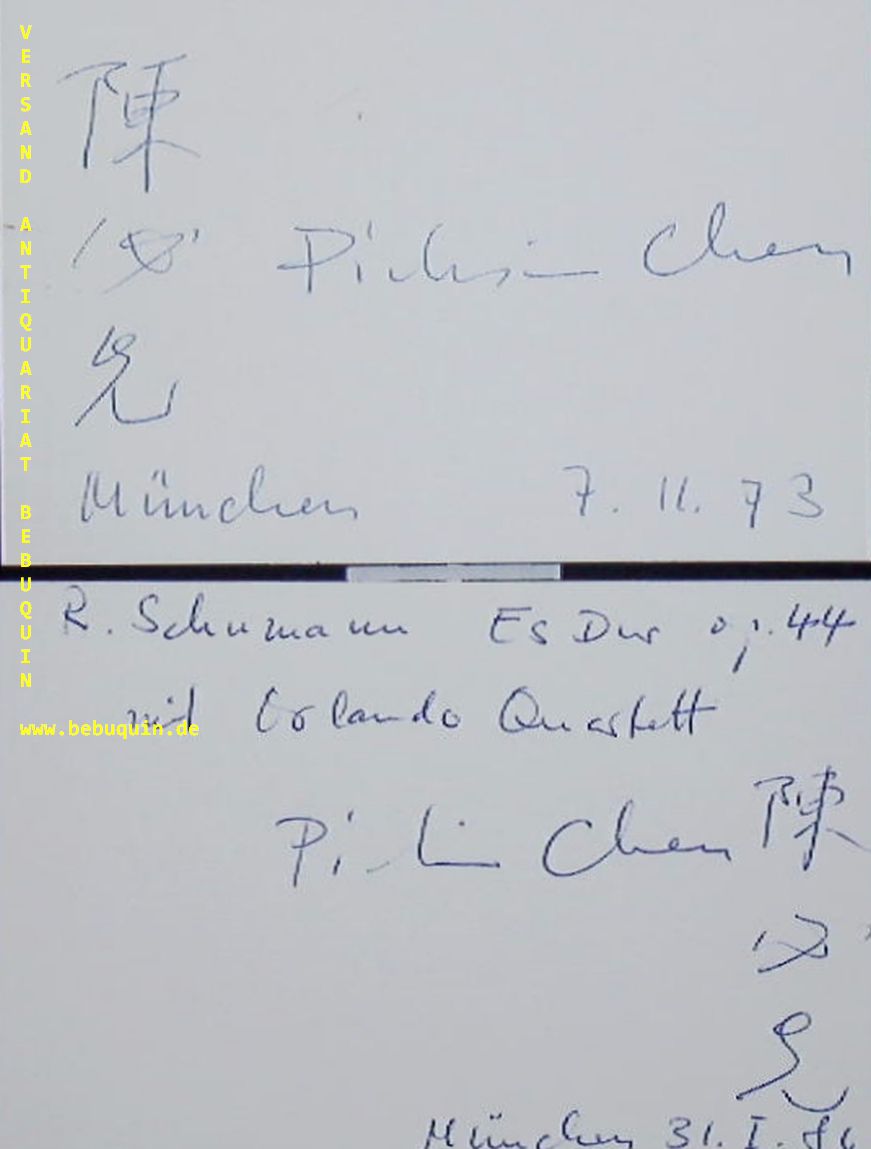 VERSAND ANTIQUARIAT BEBUQUIN
www.bebuquin.de
陳
必 Pi-hsien Chen
先
München 7. 11. 73
R. Schumann Es Dur op. 44
mit Orlando Quartett
Pi-hsien Chen 陳
必
先
München 31. I.